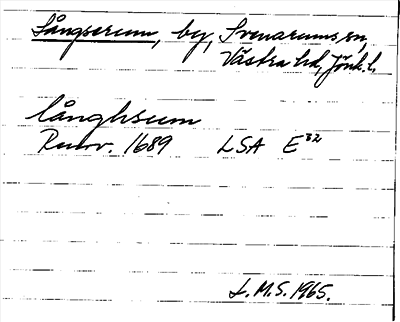 Långserum, by, Svenarums sn,
Västra hd, Jönk. l.
långhseum
Renov. 1689 LSA E³²
L.M.S. 1965.